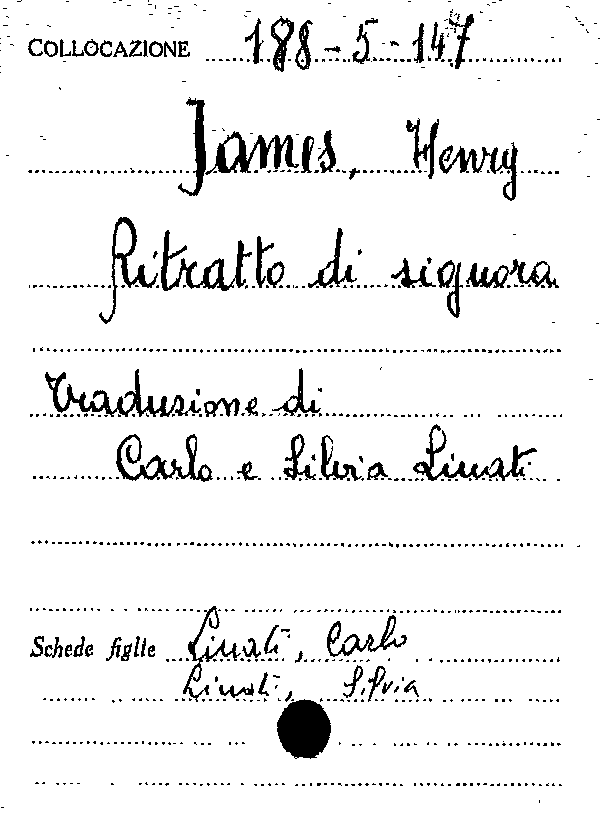 COLLOCAZIONE 188-5-147
James, Henry
Ritratto di signora
Traduzione di
Carlo e Silvia Linati
Schede figlie Linati, Carlo
Linati, Silvia